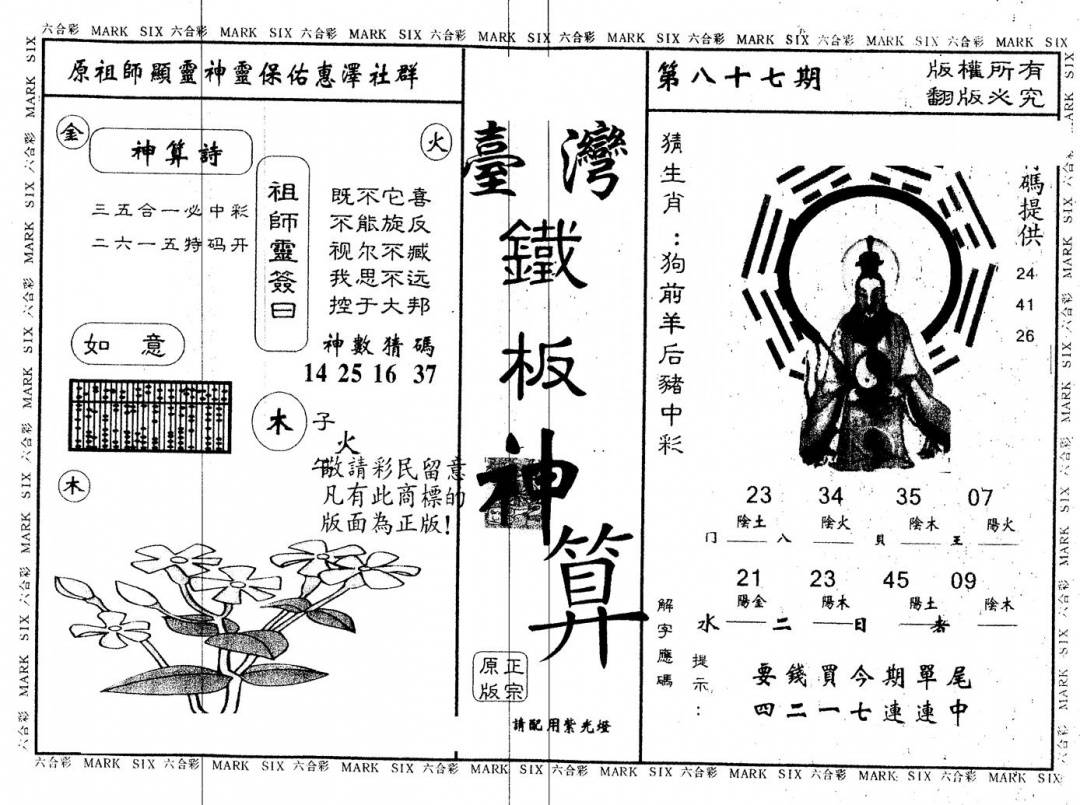 六合彩 MARK SIX 六合彩 MARK SIX 六合彩 MARK SIX 六合彩 MARK SIX 六合彩 MARK SIX 六合彩 MARK SIX 六合彩 MARK SIX 六合彩 MARK SIX
原祖師顯靈神靈保佑惠澤社群
金
神算詩
火
三五合一必中彩
二六一五特码开
祖師靈簽曰
既不它喜
不能旋反
视尔不臧
我思不远
控于大邦
神數猜碼
14 25 16 37
如意
木
子
火
午
敬請彩民留意
凡有此商標的
版面為正版!
木
臺灣
鐵
板
神
算
正宗
原版
請配用紫光燈
第八十七期
版權所有
翻版必究
猜生肖:狗前羊后豬中彩
碼提供
24
41
26
23 34 35 07
陰土 陰火 陰木 陽火
门 八 貝 王
21 23 45 09
陽金 陽木 陽土 陰木
水 二 日 者
解字應碼
提示:
要錢買今期單尾
四二一七連連中
六合彩 MARK SIX 六合彩 MARK SIX 六合彩 MARK SIX 六合彩 MARK SIX 六合彩 MARK SIX 六合彩 MARK SIX 六合彩 MARK SIX 六合彩 MARK SIX